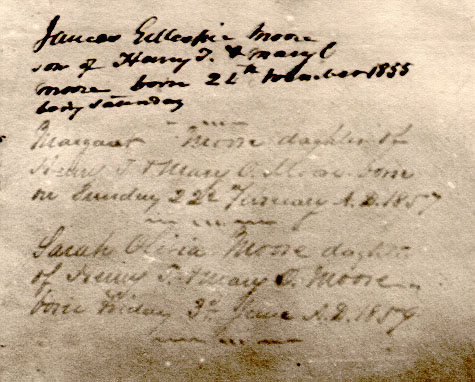 James Gillespie Moore
son of Harry T. & Mary O
Moore born 24th November 1855
being Saturday
Margaret Moore daughter of
Henry T & Mary O. Moore born
on Sunday 22d February A.D. 1857
Sarah Olivia Moore daughter
of Henry T. & Mary O. Moore
born Friday 3d June A.D. 1859